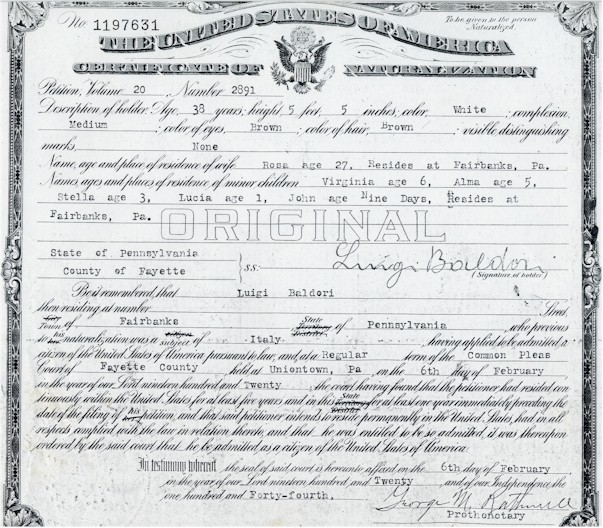 No. 1197631
To be given to the person Naturalized.
THE UNITED STATES OF AMERICA
CERTIFICATE OF NATURALIZATION
Petition, Volume 20 Number 2891
Description of holder: Age, 38 years; height, 5 feet, 5 inches; color, White ; complexion,
Medium ; color of eyes, Brown ; color of hair, Brown ; visible distinguishing
marks, None
Name, age and place of residence of wife Rosa age 27, Resides at Fairbanks, Pa.
Names, ages and places of residence of minor children Virginia age 6, Alma age 5,
Stella age 3, Lucia age 1, John age Nine Days, Resides at
Fairbanks, Pa.
ORIGINAL
State of Pennsylvania
County of Fayette
} s.s:
Luigi Baldori
(Signature of holder)
Be it remembered, that Luigi Baldori
then residing at number Street,
City Town of Fairbanks State Territory District of Pennsylvania who previous
to his naturalization was a subject of Italy having applied to be admitted a
citizen of the United States of America pursuant to law, and at a Regular term of the Common Pleas
Court of Fayette County held at Uniontown, Pa on the 6th day of February
in the year of our Lord nineteen hundred and Twenty the court having found that the petitioner had resided con-
tinuously within the United States for at least five years and in this State Territory District for at least one year immediately preceding the
date of the filing of his petition, and that said petitioner intends to reside permanently in the United States, had in all
respects complied with the law in relation thereto, and that he was entitled to be so admitted, it was thereupon
ordered by the said court that he be admitted as a citizen of the United States of America.
In testimony whereof the seal of said court is hereunto affixed on the 6th day of February
in the year of our Lord nineteen hundred and Twenty and of our Independence the
one hundred and Forty-fourth.
George M. Rathmell
Prothonotary